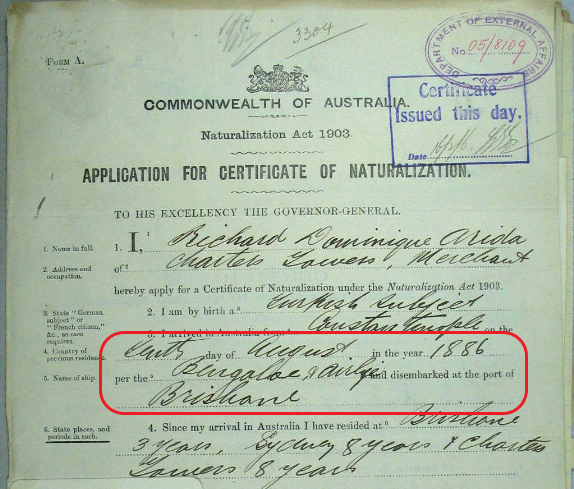 3304
FORM A.
DEPARTMENT OF EXTERNAL AFFAIRS.
No 05/8109
Certificate
Issued this day.
Date
COMMONWEALTH OF AUSTRALIA.
Naturalization Act 1903.
APPLICATION FOR CERTIFICATE OF NATURALIZATION.
TO HIS EXCELLENCY THE GOVERNOR-GENERAL.
1. Name in full. 1. I, 1 Richard Dominique Arida
2. Address and occupation. of 2 Charters Towers, Merchant
hereby apply for a Certificate of Naturalization under the Naturalization Act 1903.
3. State "German subject" or "French citizen," &c., as case requires. 2. I am by birth a 3 Turkish subject
3. I arrived in Australia from Constantinople on the
4. Country of previous residence. day of August in the year 1886
5. Name of ship. per the 5 & and disembarked at the port of
Brisbane
6. State places, and periods in each. 4. Since my arrival in Australia I have resided at 6 Brisbane
3 years, Sydney 8 years & Charters
Towers 8 years